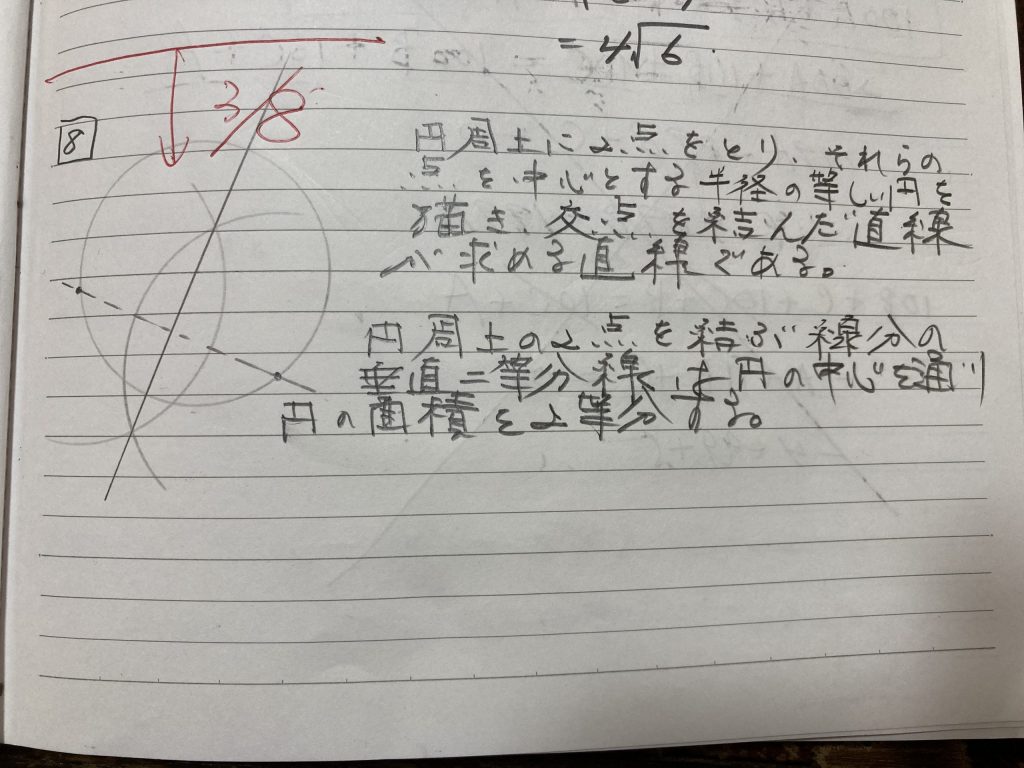 = 4√6
3/8
8
円周上に2点をとり、それらの
点を中心とする半径の等しい円を
描き、交点を結んだ直線
が求める直線である。
円周上の2点を結ぶ線分の
垂直二等分線は円の中心を通り
円の面積を2等分する。